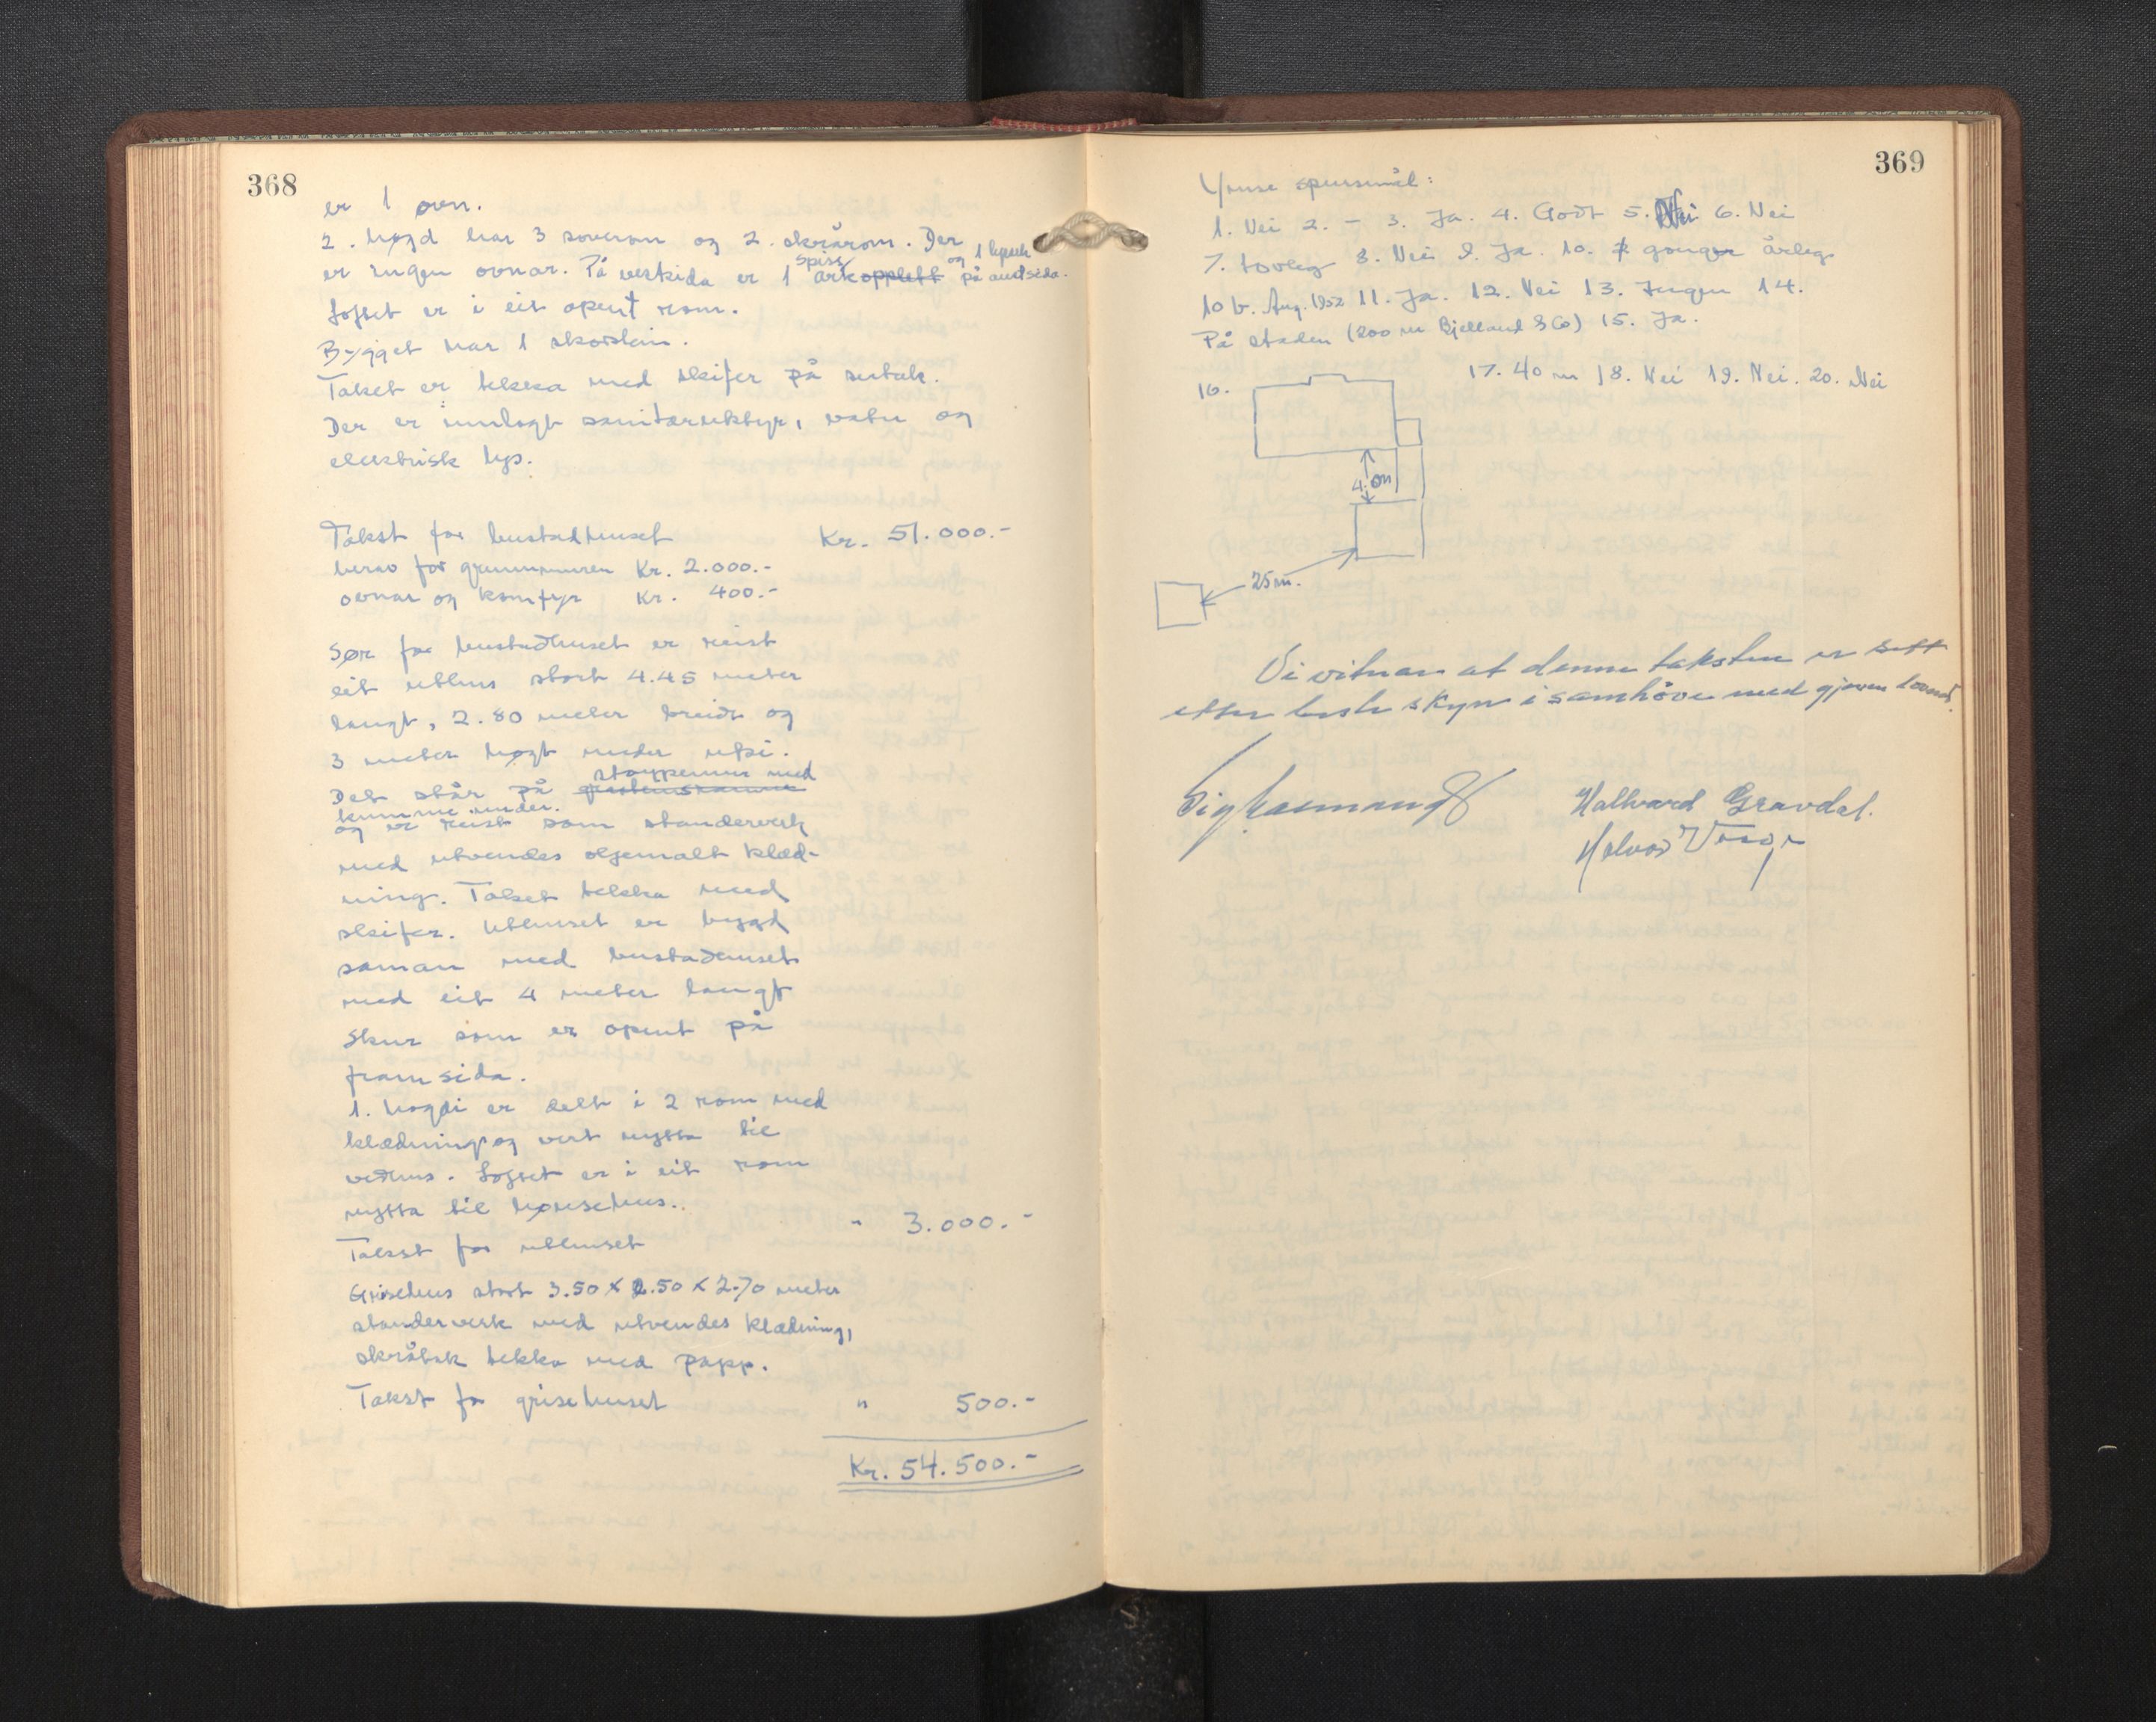 368
er 1 ovn.
2. høgd har 3 soverom og 2. skrårom. Der
er ingen ovnar. På vestsida er 1 spiss ark opplett og 1 på austsida.
Loftet er i eit opent rom.
Bygget har 1 skorstein.
Taket er tekka med skifer på sutak.
Der er innlagt sanitærutstyr, vatn og
elektrisk lys.
Takst for bustadhuset Kr. 51.000.-
herav for grunnmuren Kr. 2.000.-
ovnar og komfyr Kr. 400.-
Sør for bustadhuset er reist
eit uthus stort 4.45 meter
langt, 2.80 meter breidt og
3 meter høgt under upsi.
Det står på støypemur med
kumme under.
og er reist som standerverk
med utvendes oljemalt klæd-
ning. Taket tekka med
skifer. Uthuset er bygd
saman med bustadhuset
med eit 4 meter langt
skur som er opent på
framsida.
1. høgdi er delt i 2 rom med
klædning og vert nytta til
vedhus. Loftet er i eit rom
nytta til hønsehus.
Takst for uthuset " 3.000.-
Grisehus stort 3.50 x 2.50 x 2.70 meter
standerverk med utvendes klædning,
skråtak tekka med papp.
Takst for grisehuset " 500.-
Kr. 54.500.-
369
Ymse spursmål:
1. Nei 2. - 3. Ja. 4. Godt 5. Nei 6. Nei
7. Lovleg 8. Nei 9. Ja. 10. gongor årleg
10 b. Aug. 1952 11. Ja. 12. Nei 13. Ingen 14.
På staden (200 m Bjelland & Co) 15. Ja.
16. 17. 40 m 18. Nei 19. Nei. 20. Nei
4.0m
25m.
Vi vitnar at denne taksten er sett
etter beste skyn i samhöve med gjeven lovnad.
Hallvard Gravdal.
Halvor